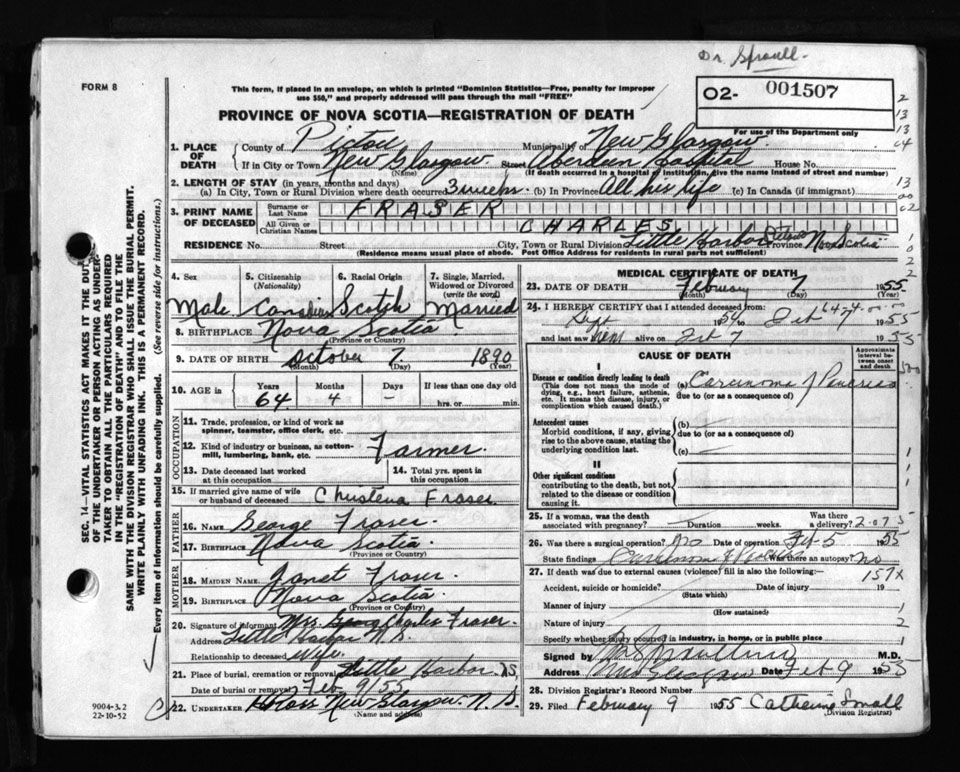 Dr. Sproull.
FORM 8
This form, if placed in an envelope, on which is printed "Dominion Statistics—Free, penalty for improper
use $50," and properly addressed will pass through the mail "FREE"
O2- 001507
For use of the Department only
PROVINCE OF NOVA SCOTIA—REGISTRATION OF DEATH
1. PLACE OF DEATH
County of Pictou Municipality of New Glasgow.
If in City or Town New Glasgow. Street Aberdeen Hospital House No.
(Name) (If death occurred in a hospital or institution, give the name instead of street and number)
2. LENGTH OF STAY (in years, months and days)
(a) In City, Town or Rural Division where death occurred 3 weeks. (b) In Province All his life (c) In Canada (if immigrant)
3. PRINT NAME OF DECEASED
Surname or Last Name FRASER
All Given or Christian Names CHARLES
RESIDENCE No. Street City, Town or Rural Division Little Harbor Pictou Province Nova Scotia
(Residence means usual place of abode. Post Office Address for residents in rural parts not sufficient)
4. Sex Male
5. Citizenship (Nationality) Canadian
6. Racial Origin Scotch
7. Single, Married, Widowed or Divorced (write the word) Married
8. BIRTHPLACE Nova Scotia
(Province or Country)
9. DATE OF BIRTH October 7 1890
(Month) (Day) (Year)
10. AGE in Years 64 Months 4 Days – If less than one day old hrs. or min.
OCCUPATION
11. Trade, profession, or kind of work as
spinner, teamster, office clerk, etc.
12. Kind of industry or business, as cotton-
mill, lumbering, bank, etc. Farmer.
13. Date deceased last worked
at this occupation
14. Total yrs. spent in
this occupation
15. If married give name of wife
or husband of deceased Christena Fraser
FATHER
16. NAME George Fraser.
17. BIRTHPLACE Nova Scotia
(Province or Country)
MOTHER
18. MAIDEN NAME Janet Fraser.
19. BIRTHPLACE Nova Scotia.
(Province or Country)
20. Signature of informant Mrs Charles Fraser.
Address Little Harbor N.S.
Relationship to deceased Wife.
21. Place of burial, cremation or removal Little Harbor NS
Date of burial or removal Feb 9/55
22. UNDERTAKER New Glasgow. N.S.
(Name and address)
MEDICAL CERTIFICATE OF DEATH
23. DATE OF DEATH February 7 1955
(Month) (Day)
24. I HEREBY CERTIFY that I attended deceased from
Sept 1954 to Feb 7 1955
and last saw him alive on Feb 7 1955
CAUSE OF DEATH
Approximate interval between onset and death
I
Disease or condition directly leading to death
(This does not mean the mode of dying, e.g., heart failure, asthenia, etc. It means the disease, injury, or complication which caused death.)
(a) Carcinoma of Pancreas
due to (or as a consequence of)
Antecedent causes
Morbid conditions, if any, giving rise to the above cause, stating the underlying condition last.
(b)
due to (or as a consequence of)
(c)
II
Other significant conditions
contributing to the death, but not related to the disease or condition causing it.
25. If a woman, was the death
associated with pregnancy? Duration weeks. Was there a delivery?
26. Was there a surgical operation? Date of operation Feb 5 1955
State findings Was there an autopsy? no
27. If death was due to external causes (violence) fill in also the following:—
157x
Accident, suicide or homicide? Date of injury 19
(State which)
Manner of injury
(How sustained)
Nature of injury
Specify whether injury occurred in industry, in home, or in public place
Signed by M.D.
Address New Glasgow Date Feb 9 1955
28. Division Registrar's Record Number
29. Filed February 9 1955 Catherine Small
(Division Registrar)
SEC. 14—VITAL STATISTICS ACT MAKES IT THE DUTY
OF THE UNDERTAKER OR PERSON ACTING AS UNDER-
TAKER TO OBTAIN ALL THE PARTICULARS REQUIRED
IN THE "REGISTRATION OF DEATH" AND TO FILE THE
SAME WITH THE DIVISION REGISTRAR WHO SHALL ISSUE THE BURIAL PERMIT.
WRITE PLAINLY WITH UNFADING INK. THIS IS A PERMANENT RECORD.
Every item of information should be carefully supplied. (See reverse side for instructions.)
9004-3.2
22-10-52